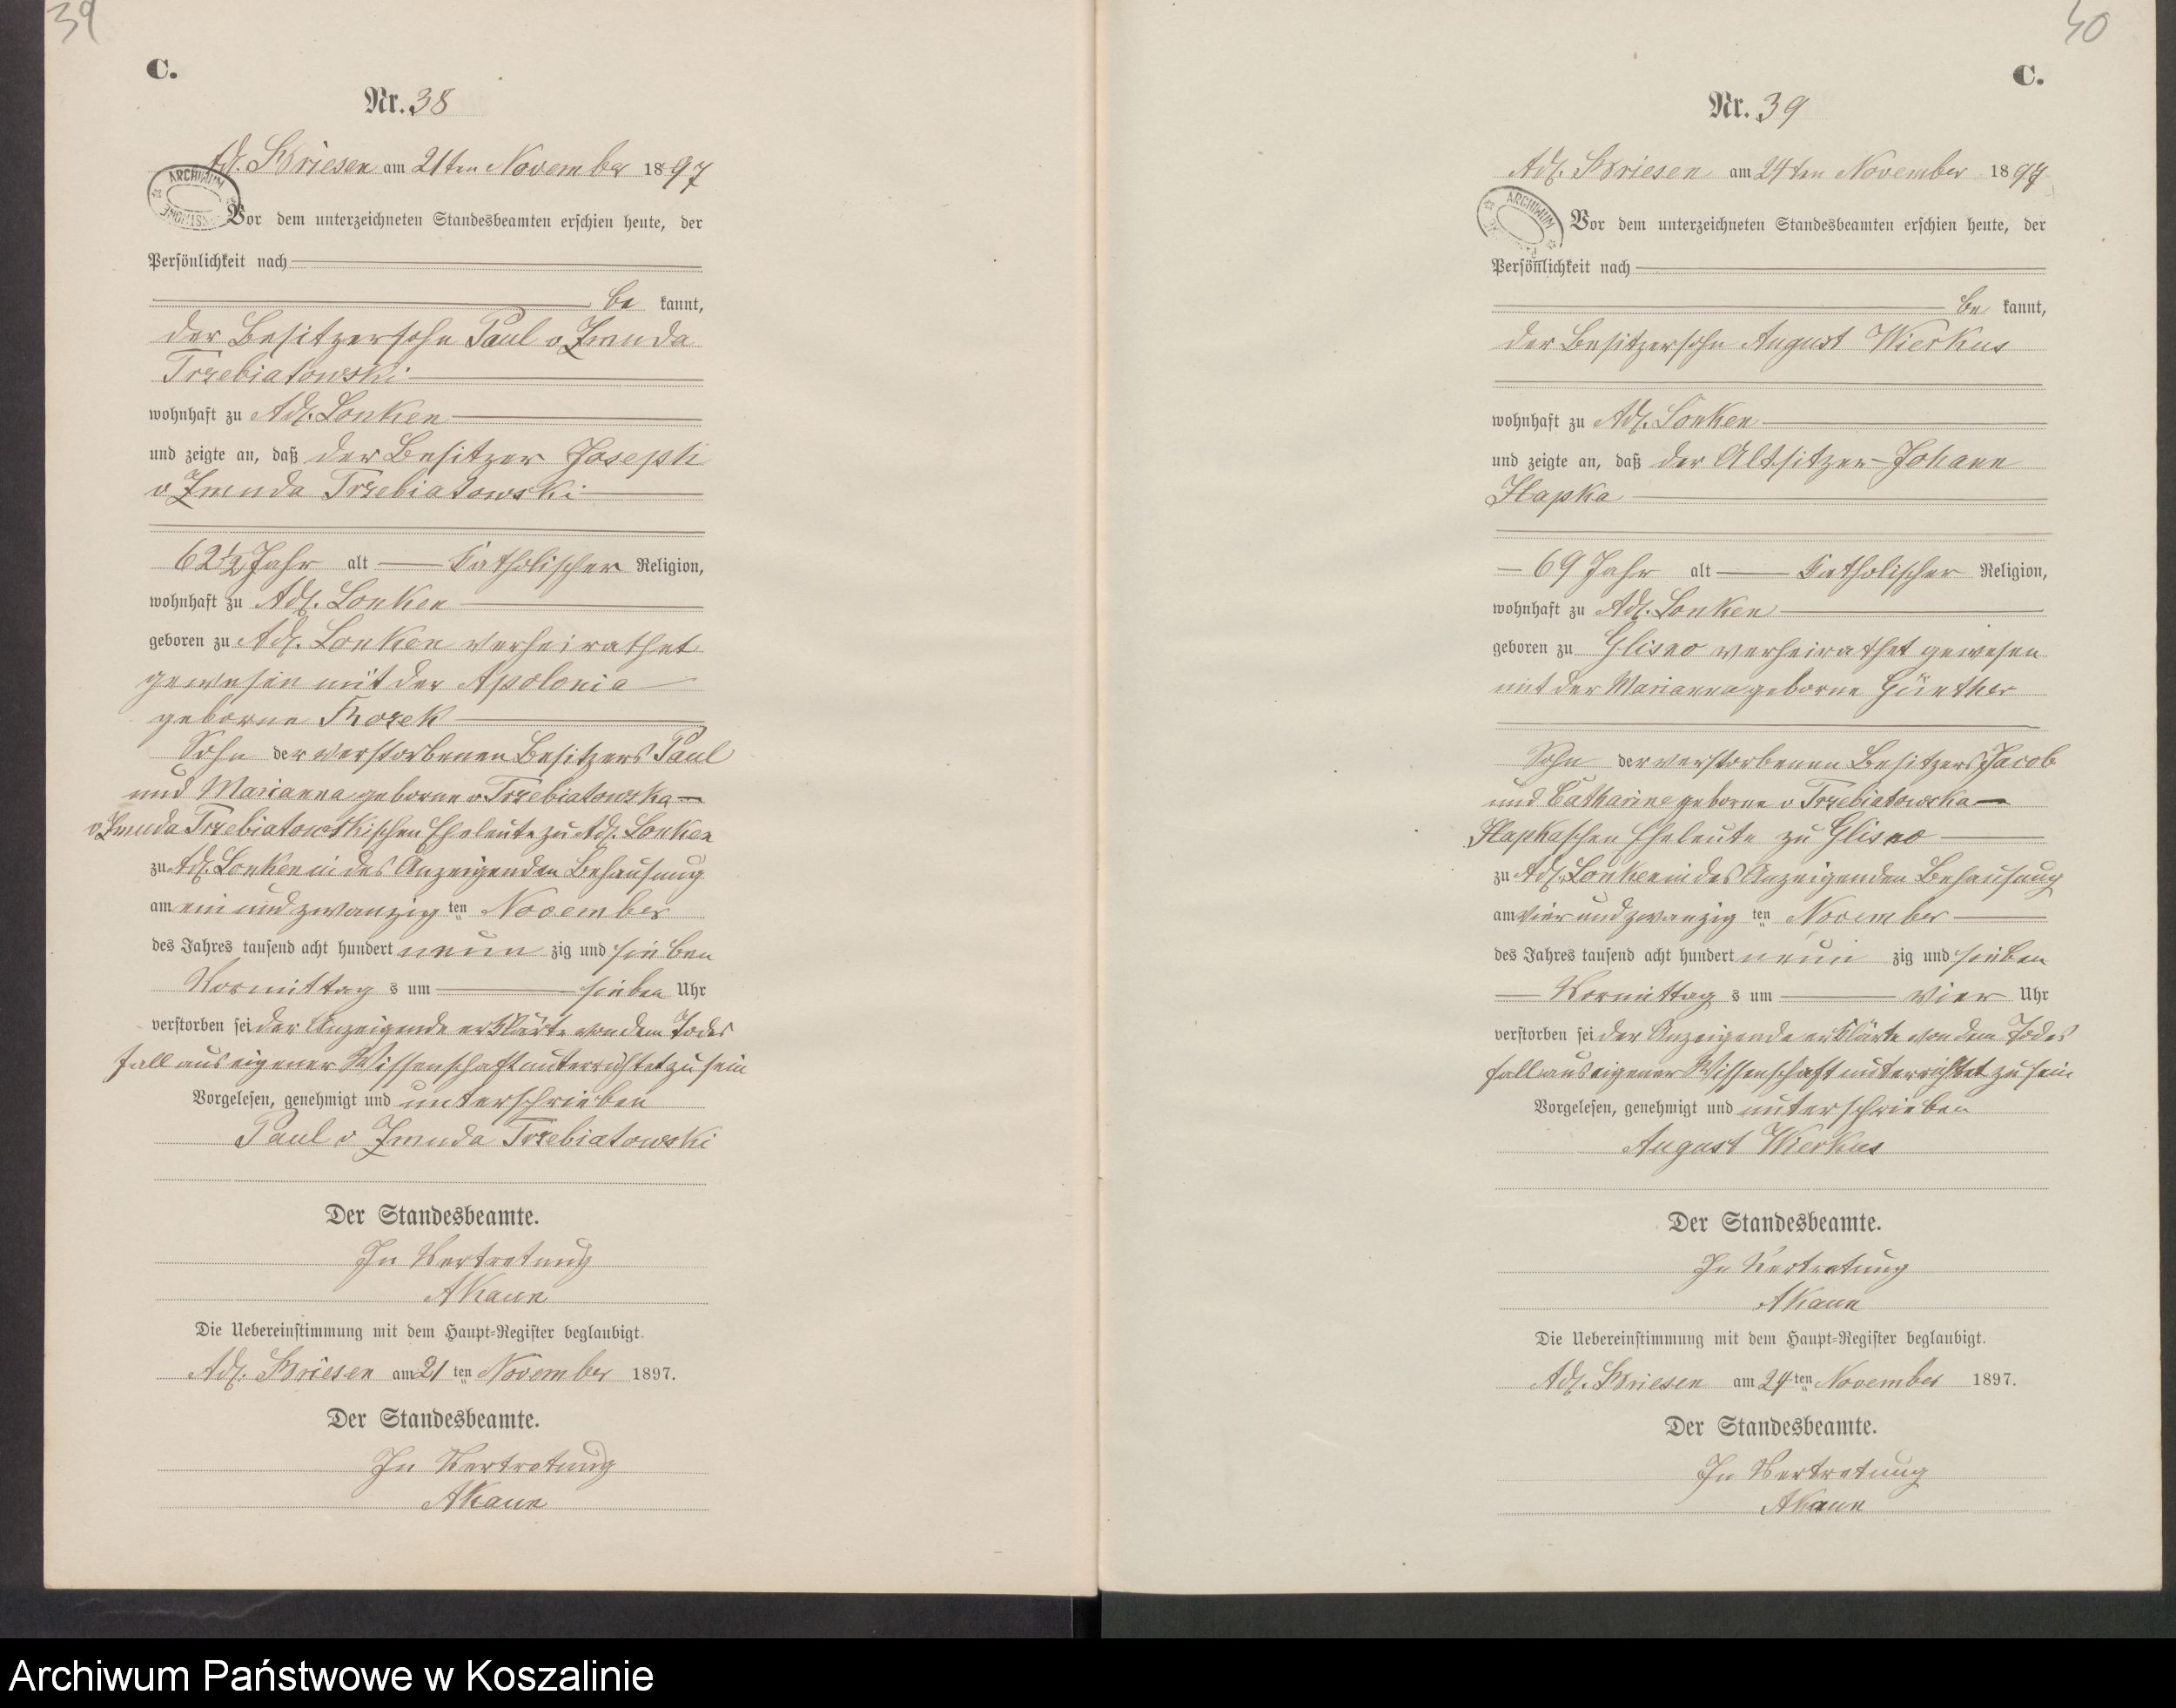 39
C.
Nr. 38
Adl. Briesen am 21ten November 1897
ARCHIWUM
Vor dem unterzeichneten Standesbeamten erschien heute, der
Persönlichkeit nach
be kannt,
der Besitzersohn Paul v Zmuda
Trzebiatowski
wohnhaft zu Adl. Lonken
und zeigte an, daß der Besitzer Joseph
v Zmuda Trzebiatowski
62½ Jahr alt katholischer Religion,
wohnhaft zu Adl. Lonken
geboren zu Adl. Lonken verheirathet
gewesen mit der Apolonia
geborne
Sohn der verstorbenen Besitzers Paul
und Marianna geborne v Trzebiatowska
v Zmuda Trzebiatowskischen Eheleute zu Adl. Lonken
zu Adl. Lonken in des Anzeigenden Behausung
am ein und zwanzig ten November
des Jahres tausend acht hundert neun zig und sieben
Vormittag s um sieben Uhr
verstorben sei der Anzeigende erklärte von dem Todes
fall aus eigener Wissenschaft unterrichtet zu sein
Vorgelesen, genehmigt und unterschrieben
Paul v Zmuda Trzebiatowski
Der Standesbeamte.
In Vertretung
Die Uebereinstimmung mit dem Haupt-Register beglaubigt.
Adl. Briesen am 21 ten November 1897.
Der Standesbeamte.
In Vertretung
40
C.
Nr. 39
Adl. Briesen am 24ten November 1897
ARCHIWUM
Vor dem unterzeichneten Standesbeamten erschien heute, der
Persönlichkeit nach
be kannt,
der Besitzersohn August Wierkus
wohnhaft zu Adl. Lonken
und zeigte an, daß der Altsitzer Johann
Hapka
69 Jahr alt katholischer Religion,
wohnhaft zu Adl. Lonken
geboren zu Glisno verheirathet gewesen
mit der Marianna geborne Günther
Sohn der verstorbenen Besitzers Jacob
und Catharine geborne v Trzebiatowska
Hapkaschen Eheleute zu Glisno
zu Adl. Lonken in des Anzeigenden Behausung
am vier und zwanzig ten November
des Jahres tausend acht hundert neun zig und sieben
Vormittag s um vier Uhr
verstorben sei der Anzeigende erklärte von dem Todes
fall aus eigener Wissenschaft unterrichtet zu sein
Vorgelesen, genehmigt und unterschrieben
August Wierkus
Der Standesbeamte.
In Vertretung
Die Uebereinstimmung mit dem Haupt-Register beglaubigt.
Adl. Briesen am 24 ten November 1897.
Der Standesbeamte.
In Vertretung
Archiwum Państwowe w Koszalinie